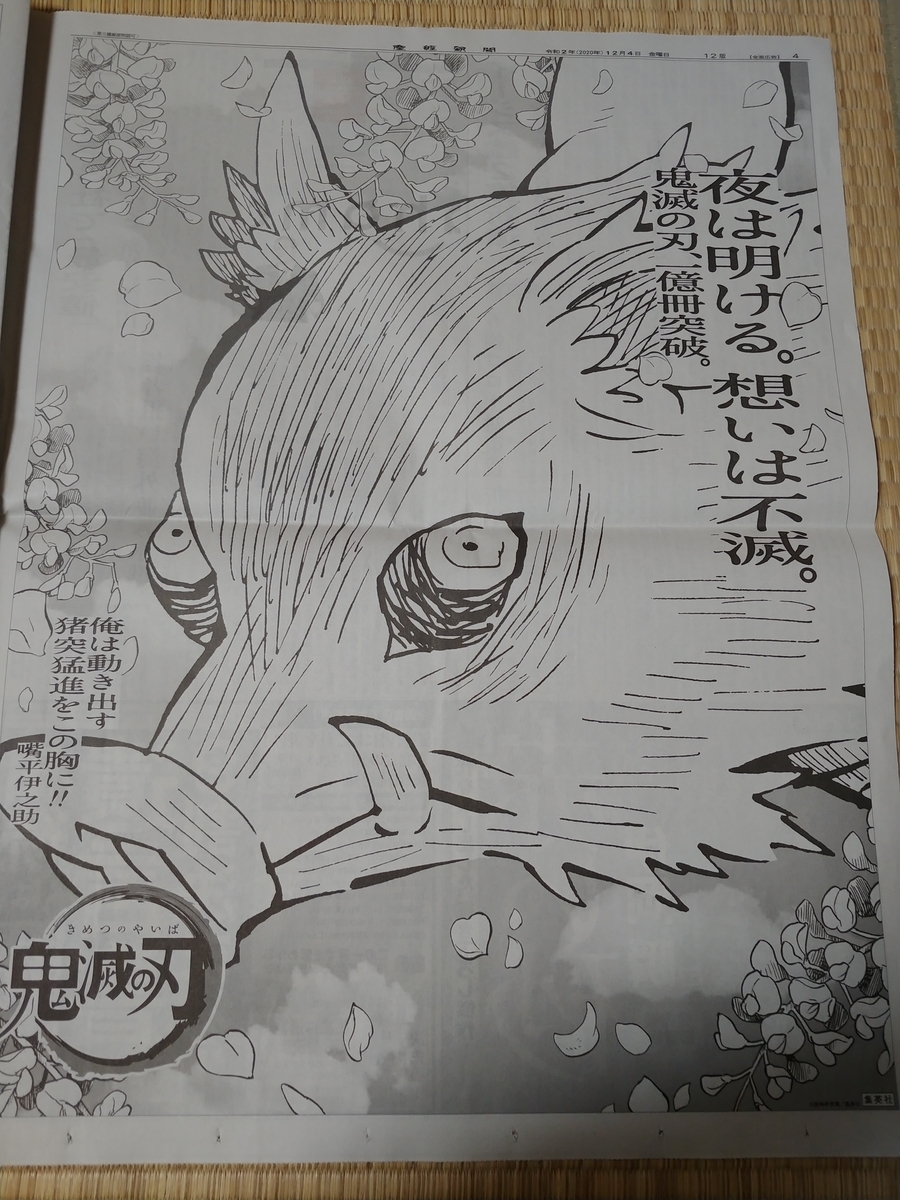 産經新聞
令和2年(2020年)12月4日 金曜日
12版
【全面広告】
4
夜は明ける。想いは不滅。
鬼滅の刃、一億冊突破。
俺は動き出す
猪突猛進をこの胸に!!
嘴平伊之助
きめつのやいば
鬼滅の刃
集英社